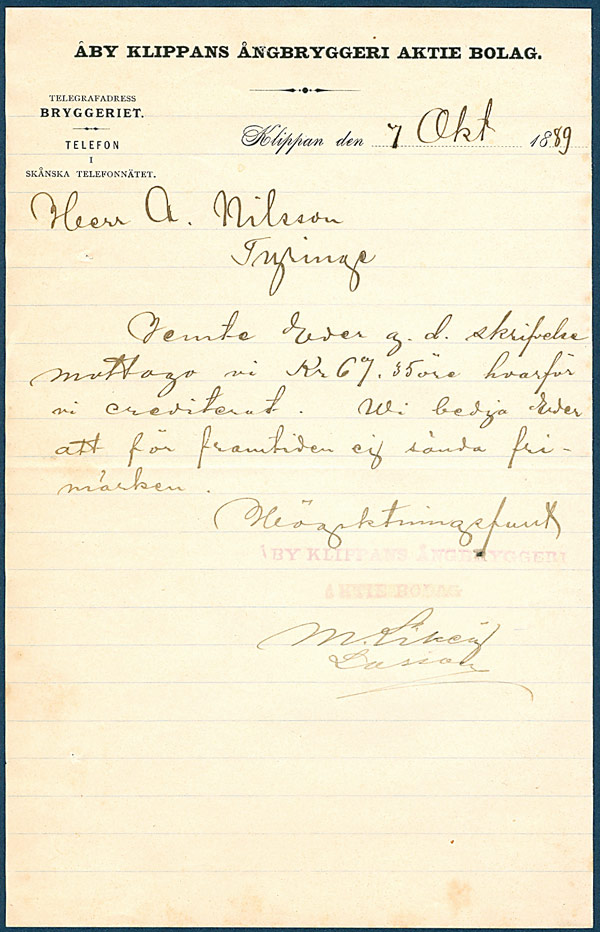 ÅBY KLIPPANS ÅNGBRYGGERI AKTIE BOLAG.
TELEGRAFADRESS
BRYGGERIET.
TELEFON
I
SKÅNSKA TELEFONNÄTET.
Klippan den 7 Okt 1889
Herr A. Nilsson
Tyringe
Jemte Eder g. d. skrifvelse
mottogo vi Kr 35 öre hvarför
vi crediterat. Wi bedja Eder
att för framtiden ej sända fri-
märken.
Högaktningsfullt
ÅBY KLIPPANS ÅNGBRYGGERI
AKTIE BOLAG
M.